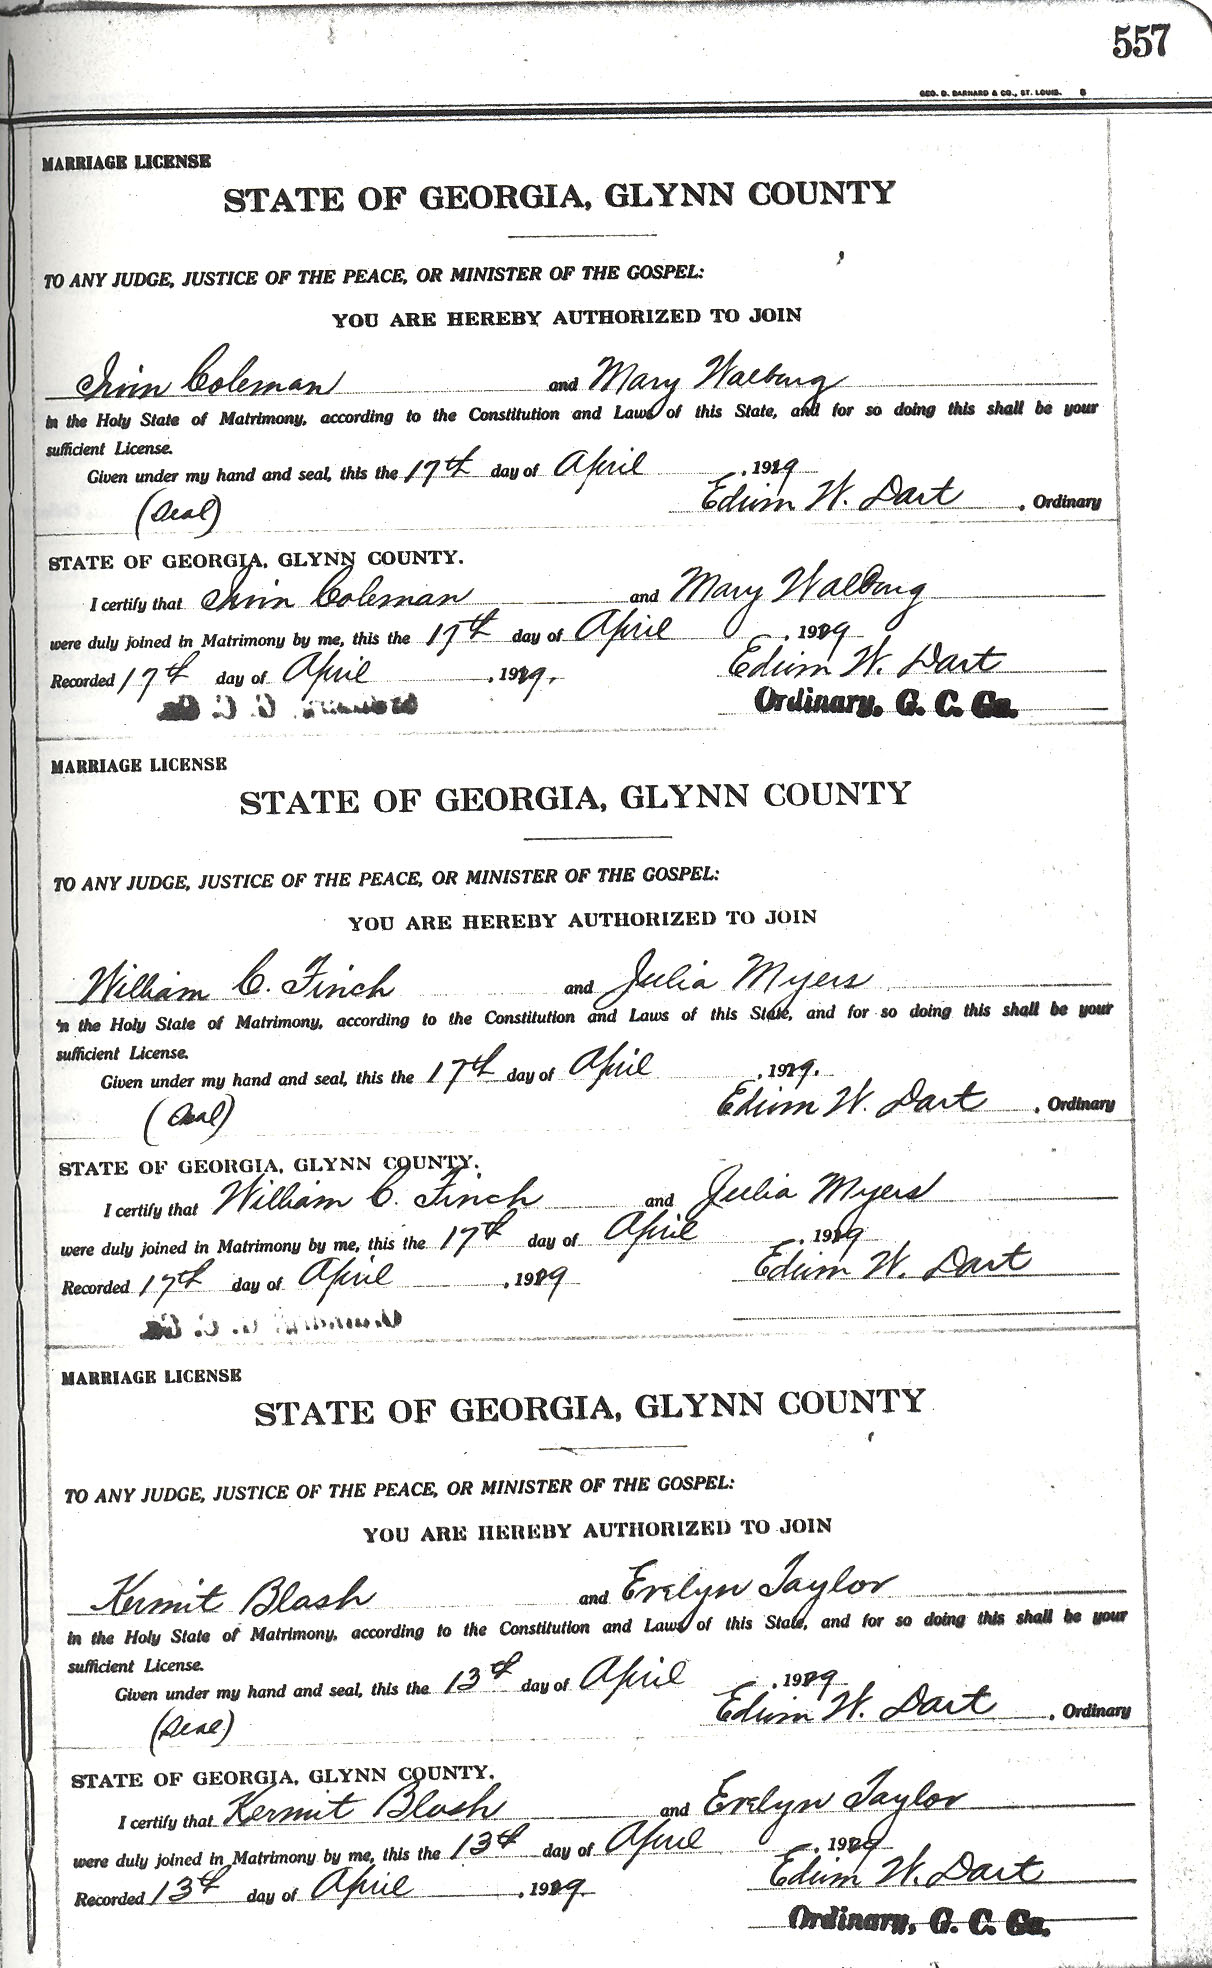 557
GEO. D. BARNARD & CO., ST. LOUIS. B
MARRIAGE LICENSE
STATE OF GEORGIA, GLYNN COUNTY
TO ANY JUDGE, JUSTICE OF THE PEACE, OR MINISTER OF THE GOSPEL:
YOU ARE HEREBY AUTHORIZED TO JOIN
Irvin Coleman and Mary Walburg
in the Holy State of Matrimony, according to the Constitution and Laws of this State, and for so doing this shall be your
sufficient License.
Given under my hand and seal, this the 17th day of April , 1929
(Seal) Edwin W. Dart , Ordinary
STATE OF GEORGIA, GLYNN COUNTY.
I certify that Irvin Coleman and Mary Walburg
were duly joined in Matrimony by me, this the 17th day of April , 1929
Recorded 17th day of April , 1929. Edwin W. Dart
Ordinary, G. C. Ga.
MARRIAGE LICENSE
STATE OF GEORGIA, GLYNN COUNTY
TO ANY JUDGE, JUSTICE OF THE PEACE, OR MINISTER OF THE GOSPEL:
YOU ARE HEREBY AUTHORIZED TO JOIN
William C. Finch and Julia Myers
in the Holy State of Matrimony, according to the Constitution and Laws of this State, and for so doing this shall be your
sufficient License.
Given under my hand and seal, this the 17th day of April , 1929.
(Seal) Edwin W. Dart , Ordinary
STATE OF GEORGIA, GLYNN COUNTY.
I certify that William C. Finch and Julia Myers
were duly joined in Matrimony by me, this the 17th day of April , 1929
Recorded 17th day of April , 1929 Edwin W. Dart
MARRIAGE LICENSE
STATE OF GEORGIA, GLYNN COUNTY
TO ANY JUDGE, JUSTICE OF THE PEACE, OR MINISTER OF THE GOSPEL:
YOU ARE HEREBY AUTHORIZED TO JOIN
Kermit Blash and Evelyn Taylor
in the Holy State of Matrimony, according to the Constitution and Laws of this State, and for so doing this shall be your
sufficient License.
Given under my hand and seal, this the 13th day of April , 1929
(Seal) Edwin W. Dart , Ordinary
STATE OF GEORGIA, GLYNN COUNTY.
I certify that Kermit Blash and Evelyn Taylor
were duly joined in Matrimony by me, this the 13th day of April , 1929
Recorded 13th day of April , 1929. Edwin W. Dart
Ordinary, G. C. Ga.